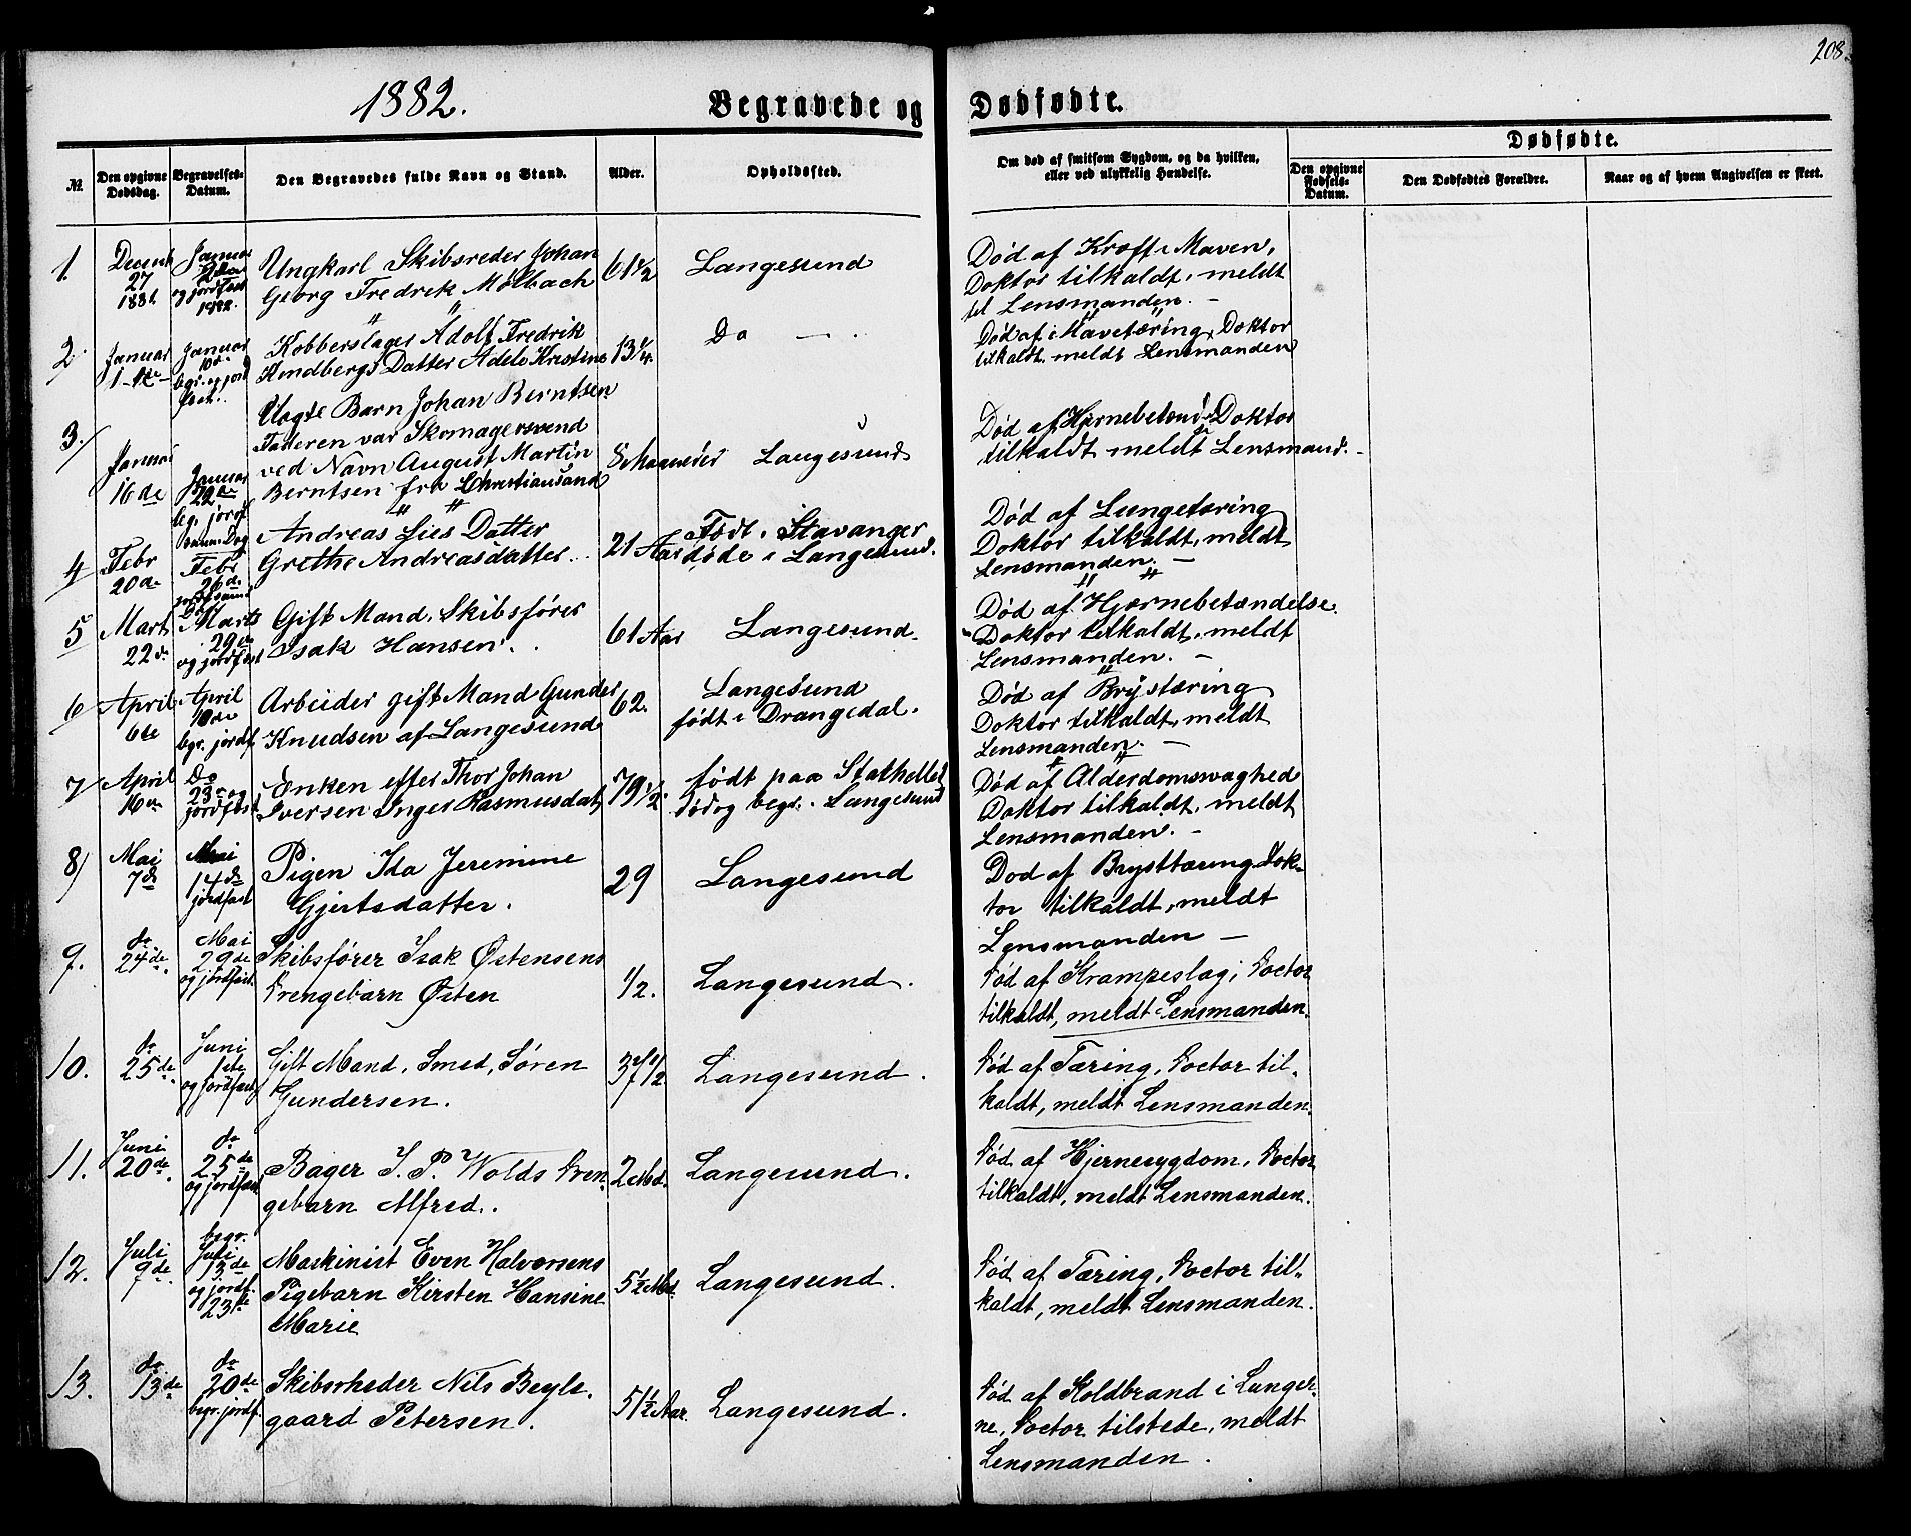 208.
1882. Begravede og Dødfødte.
№
Den opgivne Dødsdag.
Begravelses-Datum.
Den Begravedes fulde Navn og Stand.
Alder.
Opholdssted.
Om død af smitsom Sygdom, og da hvilken,
eller ved ulykkelig Hændelse.
Dødfødte.
Den opgivne Fødsels-Datum.
Den Dødfødtes Forældre.
Naar og af hvem Angivelsen er skeet.
1.
Decemb
27
1881.
Januar
og jordfæst
1882.
Ungkarl Skibsreder Johan
Georg Fredrik Mølbach
61 1/2
Langesund
Død af Kræft i Maven,
Doktor tilkaldt, meldt
til Lensmanden. –
2.
Januar
1-ste-
Januar
10de
begr. og jord
fæst.
Kobberslager Adolf Fredrik
Kindbergs Datter Adele Kristine
13 1/4
Do — .
Død af i Mavetæring, Doktor
tilkaldt meldt Lensmanden
3./
Januar
16de
Januar
22de
beg. jordf.
samm. Dag
Uægte Barn Johan Berntsen
Faderen var Skomagersvend
ved Navn August Martin
Berntsen fra Christiansand
8 Maaneder
Langesund
Død af Hjernebetænd. Doktor
tilkaldt meldt Lensmand. -
4/
Febr
20de
Febr
26d.
Andreas Lies Datter
Grethe Andreasdatter.
21 Aar
Født i Stavanger
døde i Langesund.
Død af Lungetæring
Doktor tilkaldt, meldt
Lensmanden. —
5
Mart
22d.
Marts
29de
og jordfæst
Gift Mand, Skibsfører
Isak Hansen.
61 Aar
Langesund.
Død af Hjernebetændelse
Doktor tilkaldt, meldt
Lensmanden. –
6
April
6te
April
10de
begr. jordf.
Arbeider gift Mand Gunder
Knudsen af Langesund
62.
Langesund
født i Drangedal.
Død af Brystæring
Doktor tilkaldt, meldt
Lensmanden. —
7/
April
16de
Do
23de og
jordfæst
Enken efter Thor Johan
Iversen Inger Rasmusdat
79 1/2.
født paa Stathelle
død og begr. i Langesund
Død af Alderdomsvaghed
Doktor tilkaldt, meldt
Lensmanden. –
8)
Mai
7de
Mai
14de
jordfæst
Pigen Ida Jeremine
Gjertsdatter.
29
Langesund
Død af Brysttæring, Dok-
tor tilkaldt, meldt
Lensmanden —
9.
do
24de.
Mai
29de
og jordfæst.
Skibsfører Isak Østensens
Drengebarn Østen
1/2.
Langesund.
Død af Krampeslag, Doctor
tilkaldt, meldt Lensmanden.
10.
do
25de.
Juni
1ste
og jordfæst
Gift Mand, Smed, Søren
Gundersen.
37 1/2
Langesund.
Død af Tæring, Doctor til-
kaldt, meldt Lensmanden.
11.
Juni
20de.
do
25de
og jordfæst
Bager I. P. Wolds Dren-
gebarn Alfred.
2 Md.
Langesund.
Død af Hjernesygdom, Doctor
tilkaldt, meldt Lensmanden.
12.
Juli
9de.
begr.
Juli
13de
og jordf.
23de
Maskinist Even Halvorsens
Pigebarn Kirsten Hansine
Marie
5 1/2 Md.
Langesund.
Død af Tæring, Doctor til-
kaldt, meldt Lensmanden.
13.
do
13de
do
20de
begr. jordf.
Skibsrheder Nils Beyle-
gaard Petersen.
51 1/2 Aar.
Langesund.
Død af Koldbrand i Lunger-
ne, Doctor tilstede, meldt
Lensmanden.